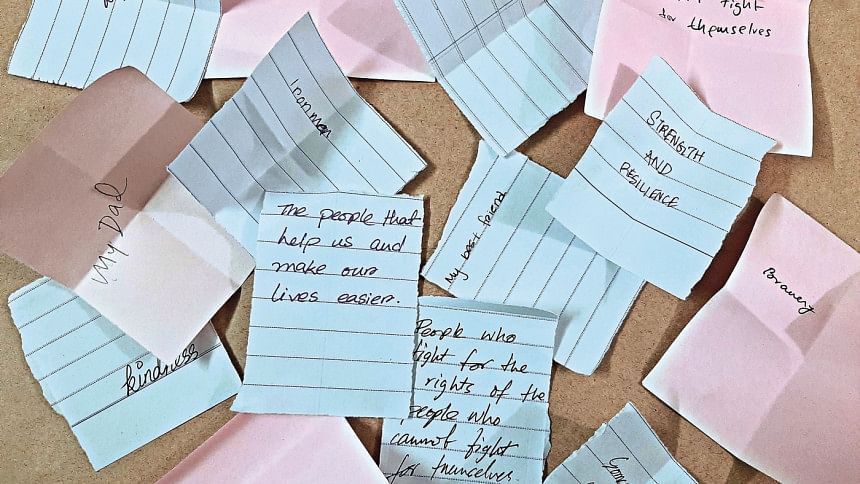 fight
for themselves
Iron man
STRENGTH
AND
RESILIENCE
My Dad
The people that
help us and
make our
lives easier.
My best friend
Bravery
kindness
People who
fight for the
rights of the
people who
cannot fight
for themselves.